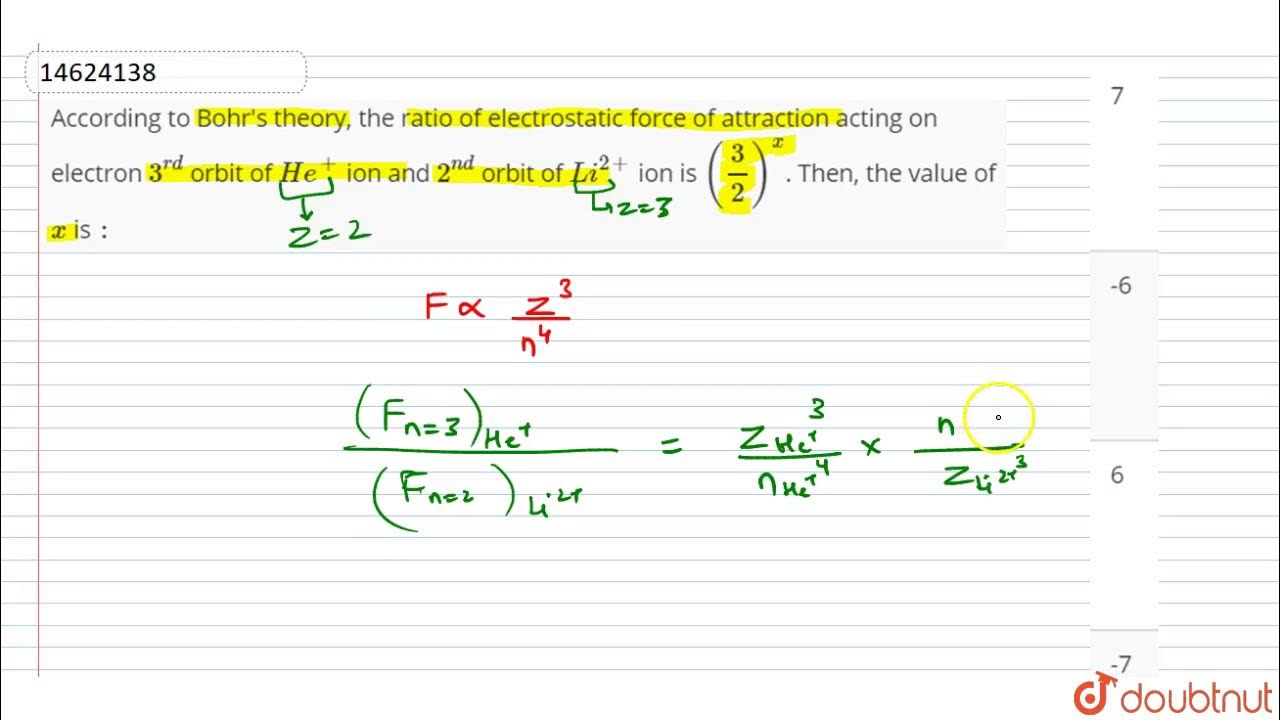 14624138
According to Bohr's theory, the ratio of electrostatic force of attraction acting on
electron 3^{rd} orbit of He^+ ion and 2^{nd} orbit of Li^{2+} ion is (3/2)^x. Then, the value of
x is :
z=3
Z=2
F ∝ Z^3/n^4
(F_{n=3})_{He^+} / (F_{n=2})_{Li^{2+}} = Z_{He^+}^3/n_{He^+}^4 × n/Z_{Li^{2+}}^3
7
-6
6
-7
doubtnut